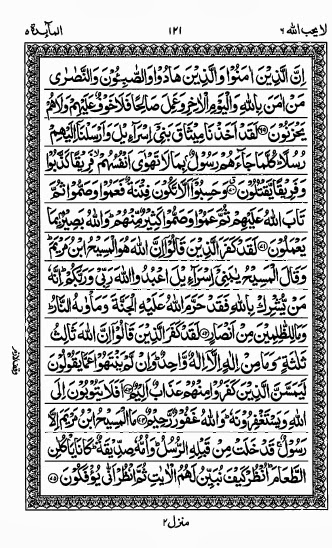 لا یحب اللہ ٦
١٢١
المآئدۃ ٥
اِنَّ الَّذِيْنَ اٰمَنُوْا وَالَّذِيْنَ هَادُوْا وَالصّٰبِـُٔوْنَ وَالنَّصٰرٰى
مَنْ اٰمَنَ بِاللّٰهِ وَالْيَوْمِ الْاٰخِرِ وَعَمِلَ صَالِحًا فَلَا خَوْفٌ عَلَيْهِمْ وَلَا هُمْ
يَحْزَنُوْنَ ۝ لَقَدْ اَخَذْنَا مِيْثَاقَ بَنِيْٓ اِسْرَآءِيْلَ وَاَرْسَلْنَآ اِلَيْهِمْ
رُسُلًا ؕ كُلَّمَا جَآءَهُمْ رَسُوْلٌۢ بِمَا لَا تَهْوٰٓى اَنْفُسُهُمْ ۙ فَرِيْقًا كَذَّبُوْا
وَفَرِيْقًا يَّقْتُلُوْنَ ۝ وَحَسِبُوْٓا اَلَّا تَكُوْنَ فِتْنَةٌ فَعَمُوْا وَصَمُّوْا ثُمَّ
تَابَ اللّٰهُ عَلَيْهِمْ ثُمَّ عَمُوْا وَصَمُّوْا كَثِيْرٌ مِّنْهُمْ ؕ وَاللّٰهُ بَصِيْرٌۢ بِمَا
يَعْمَلُوْنَ ۝ لَقَدْ كَفَرَ الَّذِيْنَ قَالُوْٓا اِنَّ اللّٰهَ هُوَ الْمَسِيْحُ ابْنُ مَرْيَمَ ؕ
وَقَالَ الْمَسِيْحُ يٰبَنِيْٓ اِسْرَآءِيْلَ اعْبُدُوا اللّٰهَ رَبِّيْ وَرَبَّكُمْ ؕ اِنَّهٗ
مَنْ يُّشْرِكْ بِاللّٰهِ فَقَدْ حَرَّمَ اللّٰهُ عَلَيْهِ الْجَنَّةَ وَمَاْوٰىهُ النَّارُ ؕ
وَمَا لِلظّٰلِمِيْنَ مِنْ اَنْصَارٍ ۝ لَقَدْ كَفَرَ الَّذِيْنَ قَالُوْٓا اِنَّ اللّٰهَ ثَالِثُ
ثَلٰثَةٍ ۘ وَمَا مِنْ اِلٰهٍ اِلَّآ اِلٰهٌ وَّاحِدٌ ؕ وَاِنْ لَّمْ يَنْتَهُوْا عَمَّا يَقُوْلُوْنَ
لَيَمَسَّنَّ الَّذِيْنَ كَفَرُوْا مِنْهُمْ عَذَابٌ اَلِيْمٌ ۝ اَفَلَا يَتُوْبُوْنَ اِلَى
اللّٰهِ وَيَسْتَغْفِرُوْنَهٗ ؕ وَاللّٰهُ غَفُوْرٌ رَّحِيْمٌ ۝ مَا الْمَسِيْحُ ابْنُ مَرْيَمَ اِلَّا
رَسُوْلٌ ۚ قَدْ خَلَتْ مِنْ قَبْلِهِ الرُّسُلُ ؕ وَاُمُّهٗ صِدِّيْقَةٌ ؕ كَانَا يَاْكُلٰنِ
الطَّعَامَ ؕ اُنْظُرْ كَيْفَ نُبَيِّنُ لَهُمُ الْاٰيٰتِ ثُمَّ انْظُرْ اَنّٰى يُؤْفَكُوْنَ ۝
منزل ٢